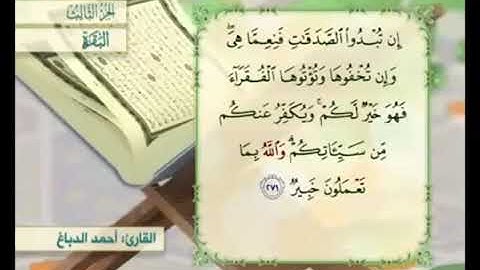 الجزء الثالث
البقرة
إِن تُبْدُوا۟ ٱلصَّدَقَٰتِ فَنِعِمَّا هِىَ ۖ
وَإِن تُخْفُوهَا وَتُؤْتُوهَا ٱلْفُقَرَآءَ
فَهُوَ خَيْرٌ لَّكُمْ ۚ وَيُكَفِّرُ عَنكُم
مِّن سَيِّـَٔاتِكُمْ ۗ وَٱللَّهُ بِمَا
تَعْمَلُونَ خَبِيرٌ ٢٧١
القارئ: أحمد الدباغ